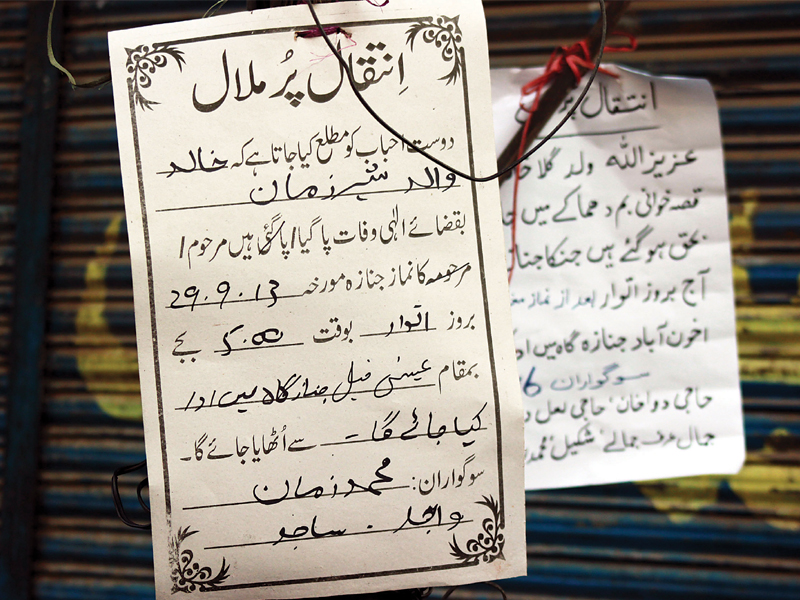 اِنتقال پُر ملال
دوست احباب کو مطلع کیا جاتا ہے کہ خالد
والد شیر زمان
بقضائے الٰہی وفات پا گیا / پا گئی ہیں مرحوم /
مرحومہ کا نماز جنازہ مورخہ 29.9.13
بروز اتوار بوقت 5:00 بجے
بمقام عیسٰی خیل جنازگاہ میں ادا
کیا جائے گا - سے اُٹھایا جائے گا۔
سوگواران: محمد زمان
واجد . ساجد
انتقال پر
عزیز اللہ ولد گلا
قصہ خوانی بم دھماکے میں
بحق ہو گئے ہیں جنکا جناز
آج بروز اتوار بعد از نماز
اخون آباد جنازہ گاہ میں
سوگواران
حاجی دوا خان' حاجی لعل
جمال عرف جمالے' شکیل' محمد